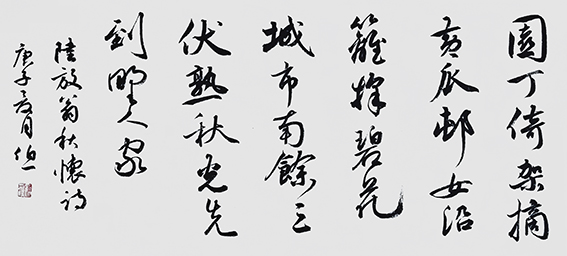 園丁倚架摘
黄瓜邨女沿
籬採碧花
城市尚餘三
伏熱秋光先
到野人家
陸放翁秋懷詩
庚子夏月